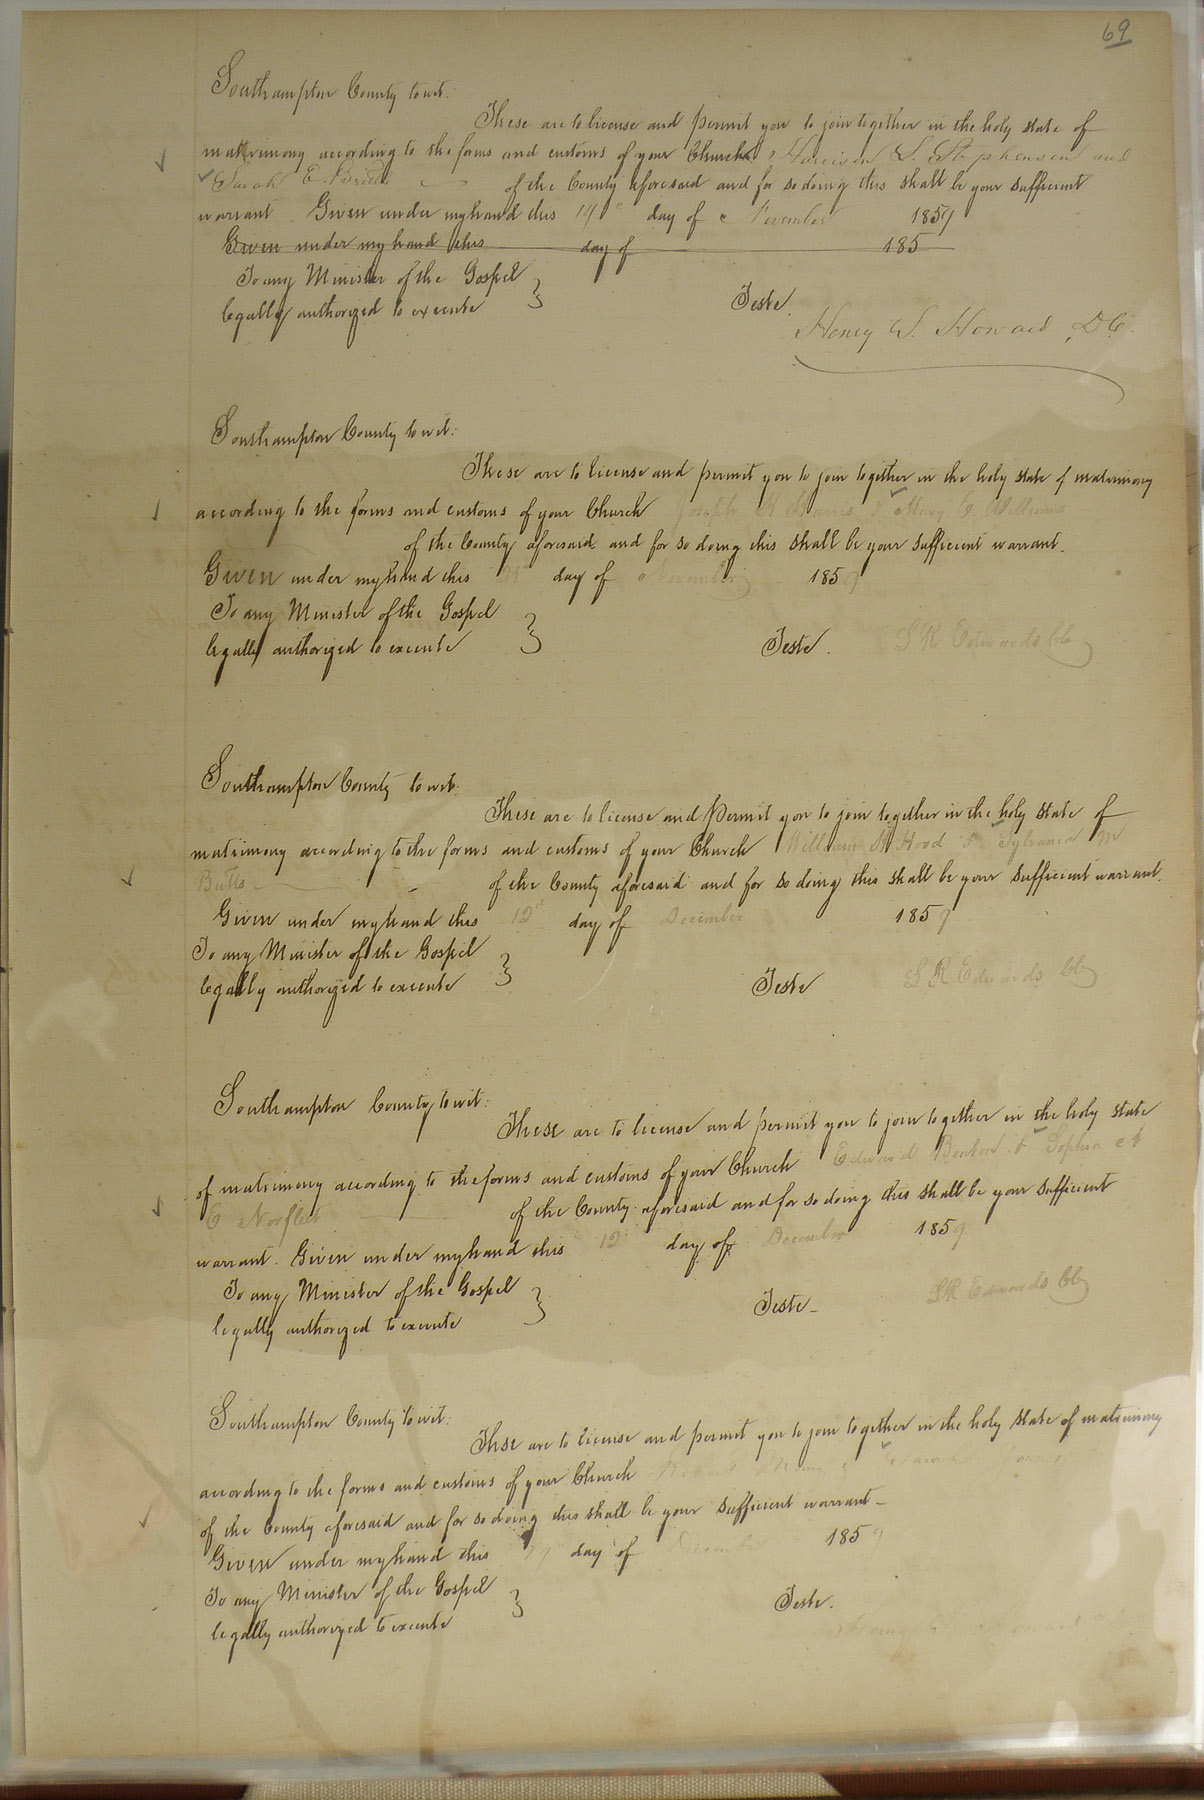 69
Southampton County to wit:
These are to license and permit you to join together in the holy state of
matrimony according to the forms and customs of your Church Harrison S. Stephenson and
Sarah E. of the County aforesaid and for so doing this shall be your sufficient
warrant Given under my hand this day of November 1859
Given under my hand this day of 185
To any Minister of the Gospel
legally authorized to execute
Teste.
Henry S. Howard D.C.
Southampton County to wit:
These are to license and permit you to join together in the holy state of matrimony
according to the forms and customs of your Church Joseph H & Mary E. Williams
of the County aforesaid and for so doing this shall be your sufficient warrant.
Given under my hand this 21 day of November 1859
To any Minister of the Gospel
legally authorized to execute
Teste. L R Edwards Clk
Southampton County to wit:
These are to license and permit you to join together in the holy state of
matrimony according to the forms and customs of your Church William H Hood & Sylvania M
Butts of the County aforesaid and for so doing this shall be your sufficient warrant.
Given under my hand this 12 day of December 1859
To any Minister of the Gospel
legally authorized to execute
Teste L R Edwards Clk
Southampton County to wit:
These are to license and permit you to join together in the holy state
of matrimony according to the forms and customs of your Church Edward Beaton & Sophia A
E Norfleet of the County aforesaid and for so doing this shall be your sufficient
warrant. Given under my hand this 12 day of December 1859
To any Minister of the Gospel
legally authorized to execute
Teste- L R Edwards Clk
Southampton County to wit:
These are to license and permit you to join together in the holy state of matrimony
according to the forms and customs of your Church
of the County aforesaid and for so doing this shall be your sufficient warrant-
Given under my hand this day of December 1859
To any Minister of the Gospel
legally authorized to execute
Teste.